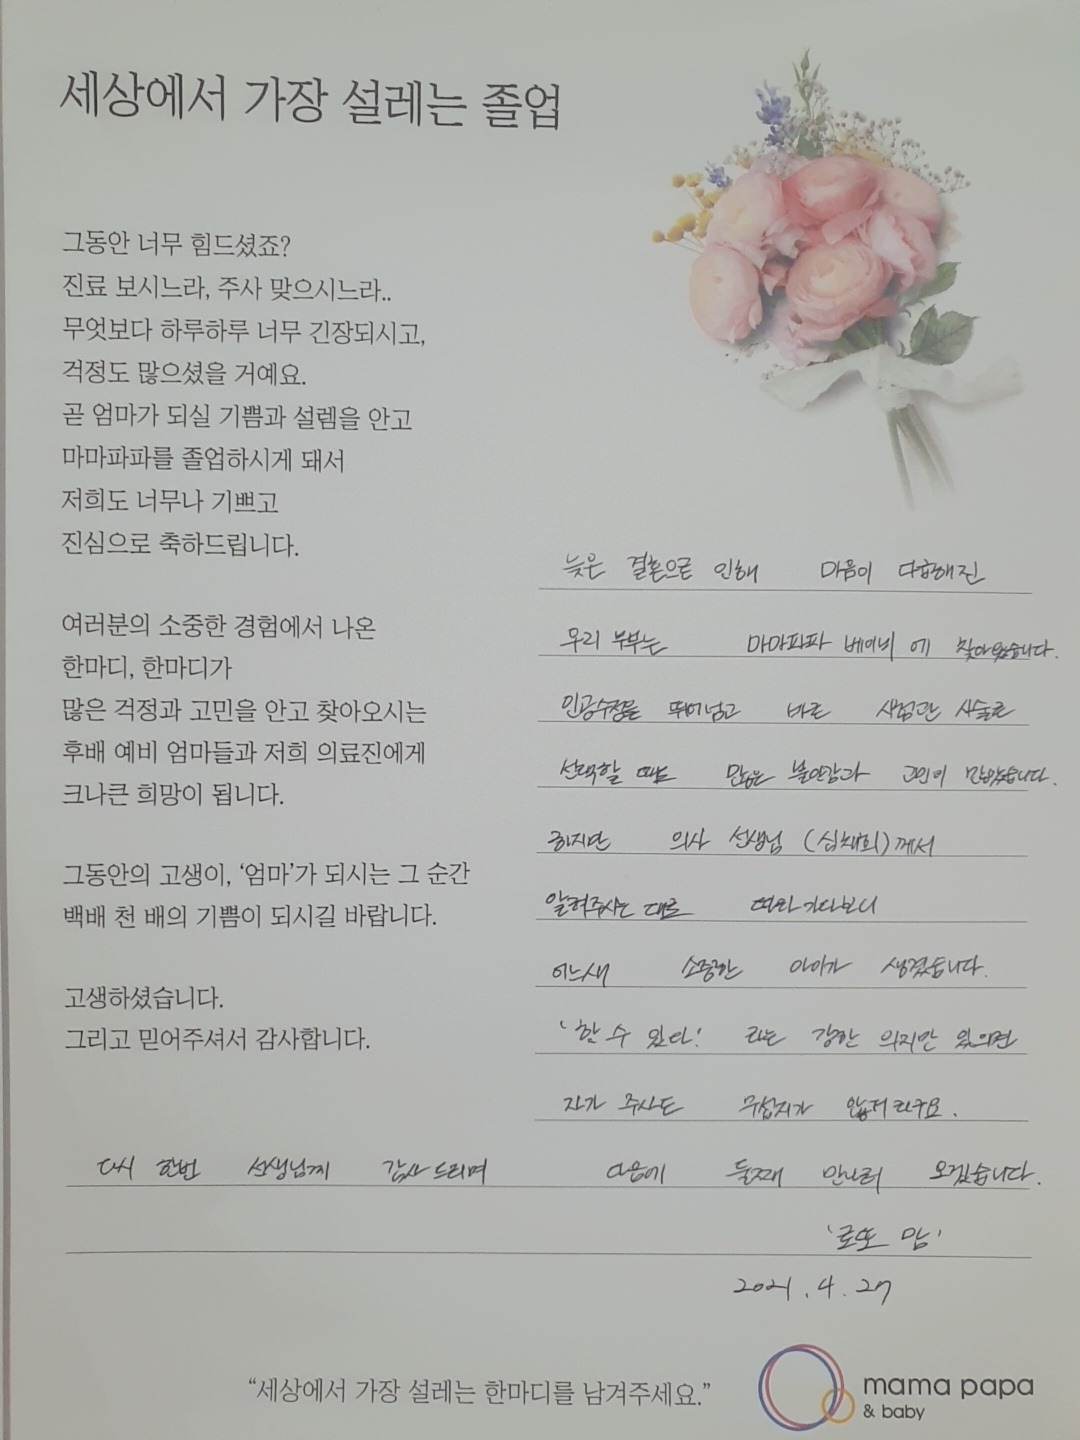 세상에서 가장 설레는 졸업
그동안 너무 힘드셨죠?
진료 보시느라, 주사 맞으시느라..
무엇보다 하루하루 너무 긴장되시고,
걱정도 많으셨을 거예요.
곧 엄마가 되실 기쁨과 설렘을 안고
마마파파를 졸업하시게 돼서
저희도 너무나 기쁘고
진심으로 축하드립니다.
여러분의 소중한 경험에서 나온
한마디, 한마디가
많은 걱정과 고민을 안고 찾아오시는
후배 예비 엄마들과 저희 의료진에게
크나큰 희망이 됩니다.
그동안의 고생이, ‘엄마’가 되시는 그 순간
백배 천 배의 기쁨이 되시길 바랍니다.
고생하셨습니다.
그리고 믿어주셔서 감사합니다.
늦은 결혼으로 인해 마음이 다급해진
우리 부부는 마마파파 베이비 에 찾아왔습니다.
인공수정을 뛰어넘고 바로 시험관 시술로
선택할 때도 많은 불안감과 고민이 많았습니다.
하지만 의사 선생님 (심채희)께서
알려주시는 대로 따라가다보니
어느새 소중한 아이가 생겼습니다.
'할 수 있다!' 라는 강한 의지만 있으면
자가 주사도 무섭지가 않더라구요.
다시 한번 선생님께 감사드리며 다음에 둘째 만나러 오겠습니다.
'로또 맘'
2021.4.27
“세상에서 가장 설레는 한마디를 남겨주세요.”
mama papa
& baby